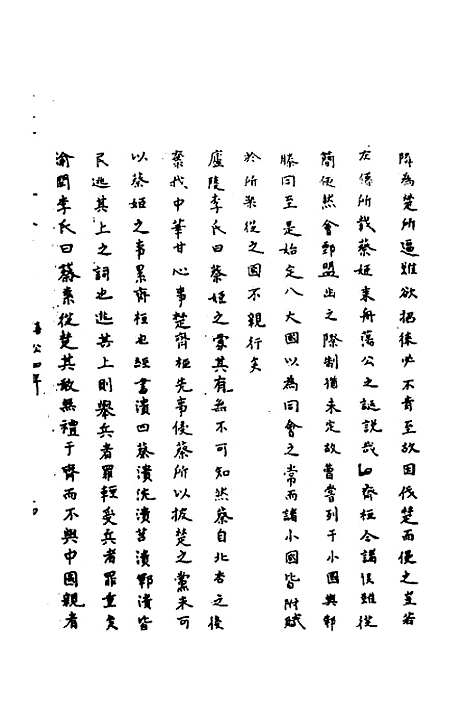 陳為楚所逼雖欲招徠必不肯至故因伐楚而侵之豈若
左傳所載蔡姬乗舟蕩公之謎說哉 齊桓令諸侯雖從
簡便然會鄄盟幽之際制猶未定故曹嘗列于小國與邾
滕同至是始定八大國以為同會之常而諸小國皆附賦
於所來從之國不親行矣
廬陵李氏曰蔡姬之事其有無不可知然蔡自北杏之後
棄我中華甘心事楚齊桓先事侵蔡所以披楚之黨未可
以蔡姬之事累齊桓也經書潰四蔡潰沈潰莒潰鄆潰皆
民逃其上之詞也逃其上則舉兵者罪輕受兵者罪重矣
渝關李氏曰蔡素從楚其敢無禮于齊而不與中國親者
僖公四年